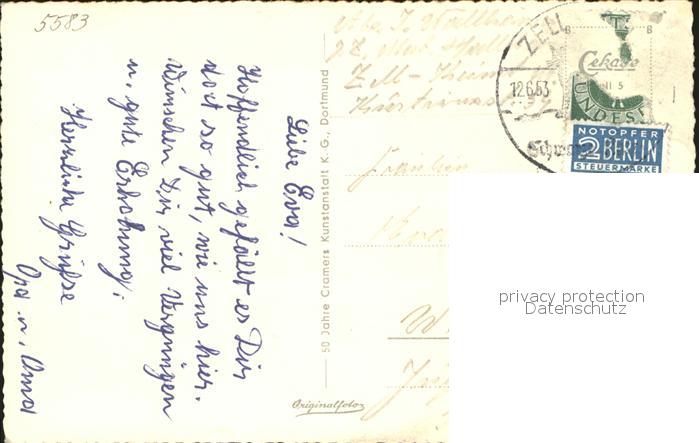 5583
Liebe Eva!
Hoffendlich gefällt es Dir
dort so gut, wie uns hier.
Wünschen Dir viel Vergnügen
u. gute Erholung.
Herzliche Grüße
Opa u. Oma
50 Jahre Cramers Kunstanstalt K. G., Dortmund
Originalfoto
Zell-
Fräulein
ZELL
12.6.53
Cekade
B B
UNDES
NOTOPFER
2 BERLIN
STEUERMARKE
privacy protection
Datenschutz